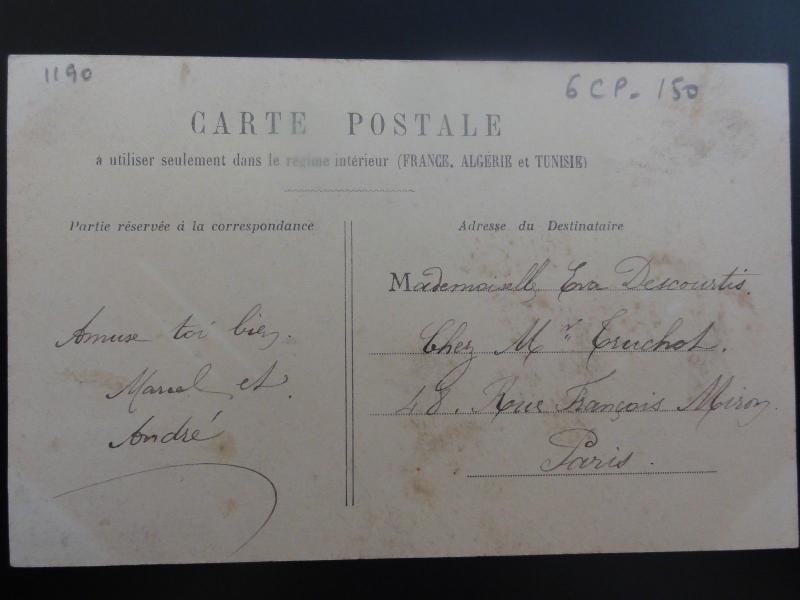 1190
6 CP - 150
CARTE POSTALE
à utiliser seulement dans le régime intérieur (FRANCE, ALGÉRIE et TUNISIE)
Partie réservée à la correspondance
Amuse toi bien.
Marcel et.
André
Adresse du Destinataire
Mademoiselle Eva Descourtis.
Chez Mr Truchot.
48. Rue François Miron
Paris.